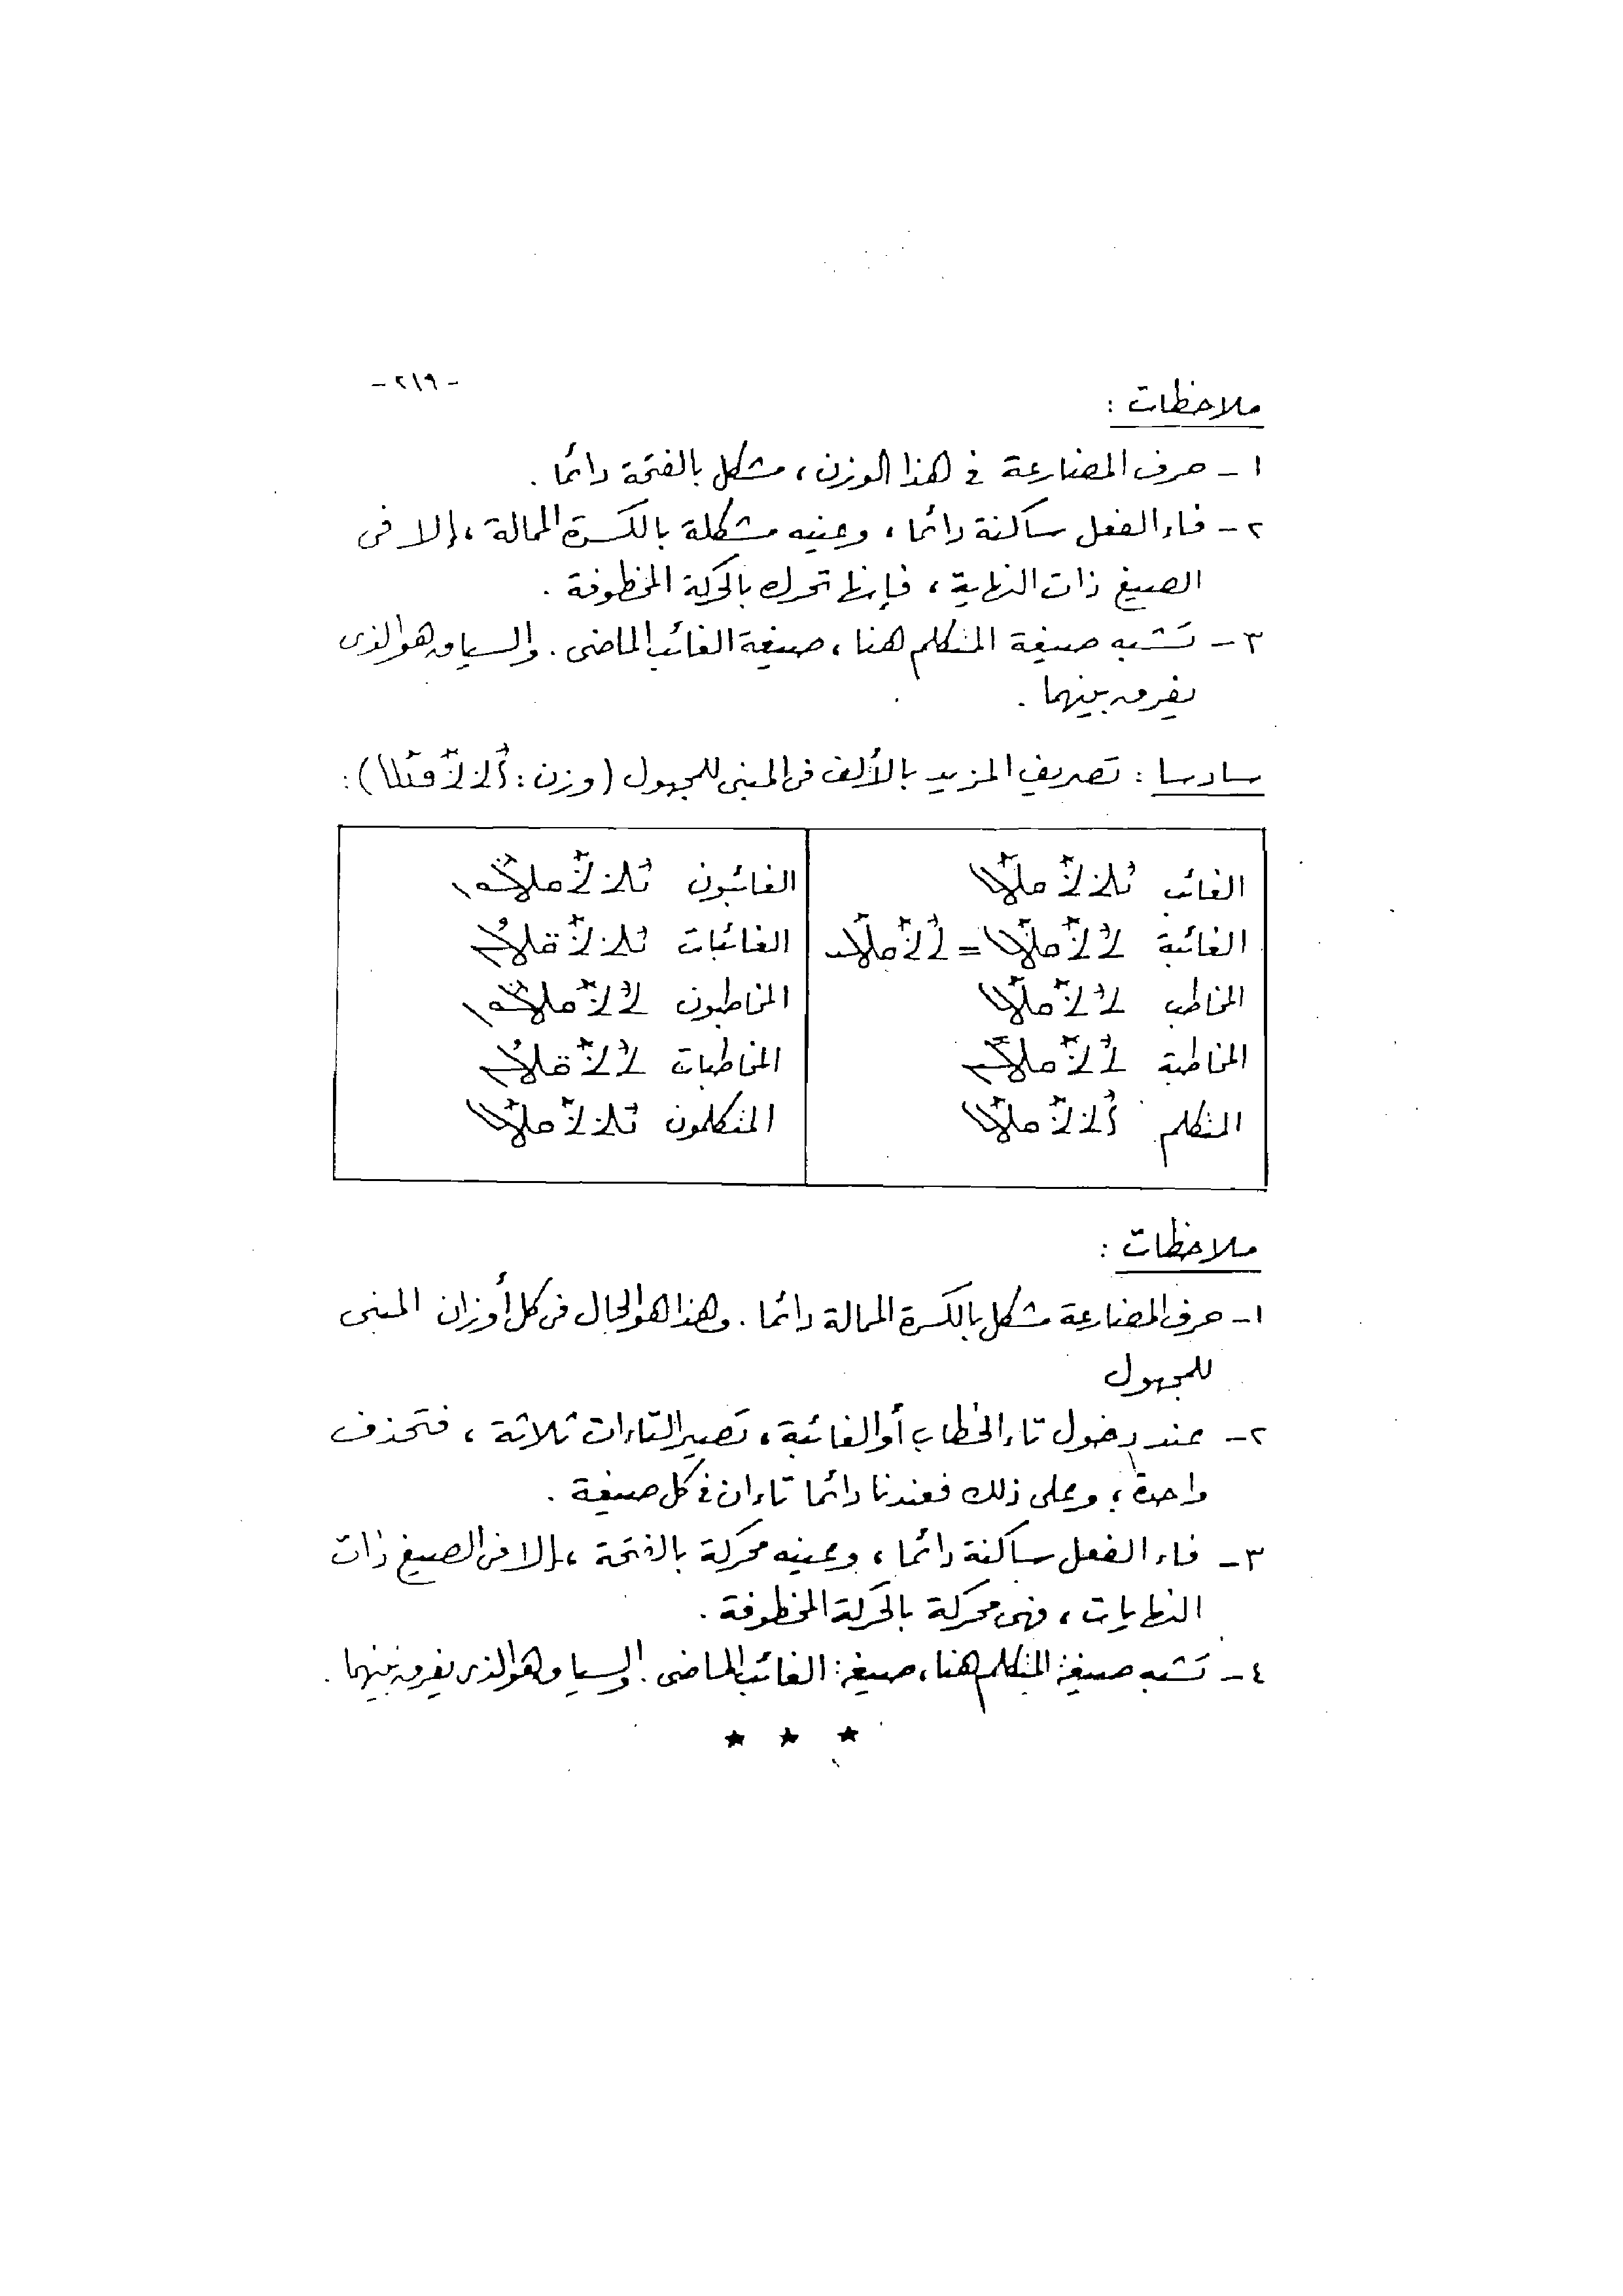 - ٢١٩ -
ملاحظات :
١ - حرف المضارعة في هذا الوزن ، مشكل بالفتحة دائما .
٢ - فاء الفعل ساكنة دائما ، وعينه مشكلة بالكسرة الممالة ، إلا فى
الصيغ ذات النهاية ، فإنها تحرك بالحركة المخطوفة .
٣ - تشبه صيغة المتكلم هنا ، صيغة الغائب الماضى . والسياق هو الذى
يفرق بينهما .
سادسا : تصريف المزيد بالألف فى المبنى للمجهول ( وزن : ܐܬܬܩܛܠ ) :
الغائب ܢܬܬܩܛܠ الغائبون ܢܬܬܩܛܠܘܢ
الغائبة ܬܬܩܛܠ = ܬܬܩܛܠܝ الغائبات ܢܬܬܩܛܠܢ
المخاطب ܬܬܩܛܠ المخاطبون ܬܬܩܛܠܘܢ
المخاطبة ܬܬܩܛܠܝܢ المخاطبات ܬܬܩܛܠܢ
المتكلم ܐܬܬܩܛܠ المتكلمون ܢܬܬܩܛܠ
ملاحظات :
١ - حرف المضارعة مشكل بالكسرة الممالة دائما . وهذا هو الحال فى كل أوزان المبنى
للمجهول
٢ - عند دخول تاء الخطاب أو الغائبة ، تصير التاءات ثلاثة ، فتحذف
واحدة ، وعلى ذلك فعندنا دائما تاءان في كل صيغة .
٣ - فاء الفعل ساكنة دائما ، وعينه محركة بالفتحة ، إلا فى الصيغ ذات
النهايات ، فهى محركة بالحركة المخطوفة .
٤ - تشبه صيغة المتكلم هنا ، صيغة الغائب الماضى . والسياق هو الذى يفرق بينهما .
★ ★ ★